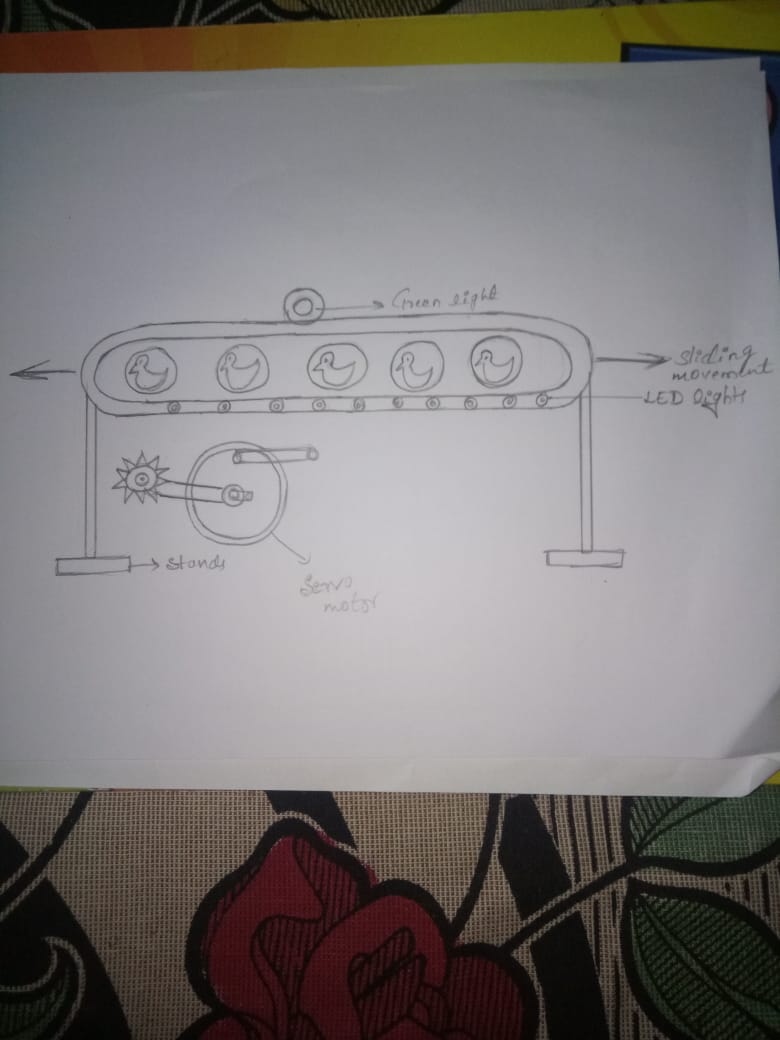 Green light
sliding
movement
LED lights
stands
Servo
motor